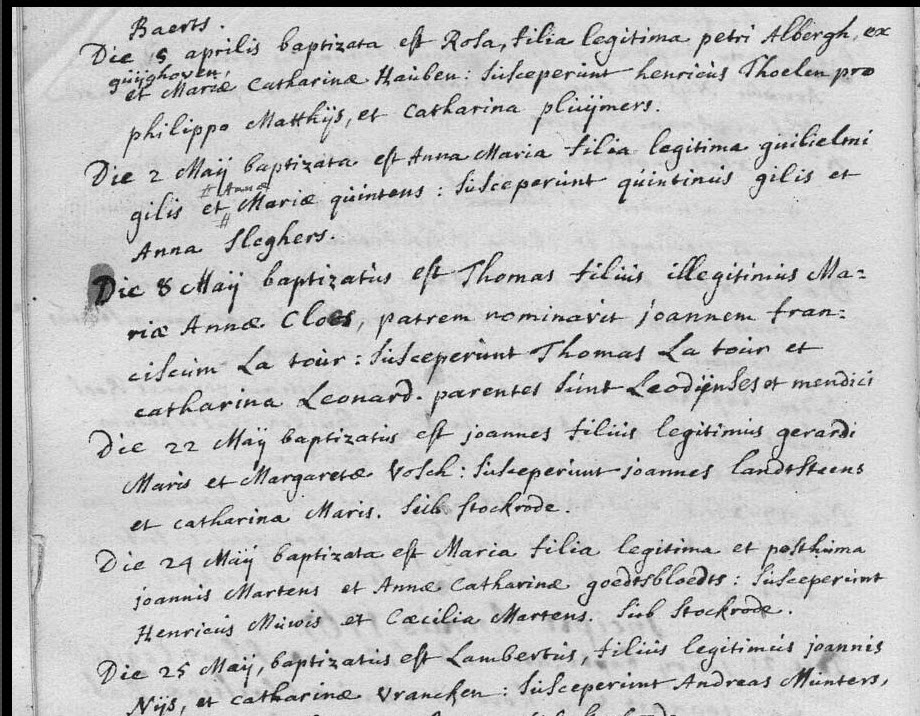 Baerts.
Die 5 aprilis baptizata est Rosa, filia legitima petri Albergh, ex
guijghoven,
et Mariæ Catharinæ Hauben: Susceperunt henricus Thoelen pro
philippo Matthijs, et Catharina pluijmers.
Die 2 Maij baptizata est Anna Maria filia legitima guilielmi
# Annæ
gilis et Mariæ quintens: Susceperunt quintinus gilis et
#
Anna Sleghers.
Die 8 Maij baptizatus est Thomas filius illegitimus Ma=
riæ Annæ Cloes, patrem nominavit joannem fran=
ciscum La tour: Susceperunt Thomas La tour et
catharina Leonard. parentes sunt Leodijnses et mendici
Die 22 Maij baptizatus est joannes filius legitimus gerardi
Maris et Margaretæ Vosch: Susceperunt joannes landtsteens
et catharina Maris. Sub stockrode.
Die 24 Maij baptizata est Maria filia legitima et posthuma
joannis Martens et Annæ Catharinæ goedtsbloedts: Susceperunt
Henricus Muwis et Cæcilia Martens. Sub Stockrode.
Die 25 Maij, baptizatus est Lambertus, filius legitimus joannis
Nijs, et Catharinæ Vrancken: Susceperunt Andreas Munters,